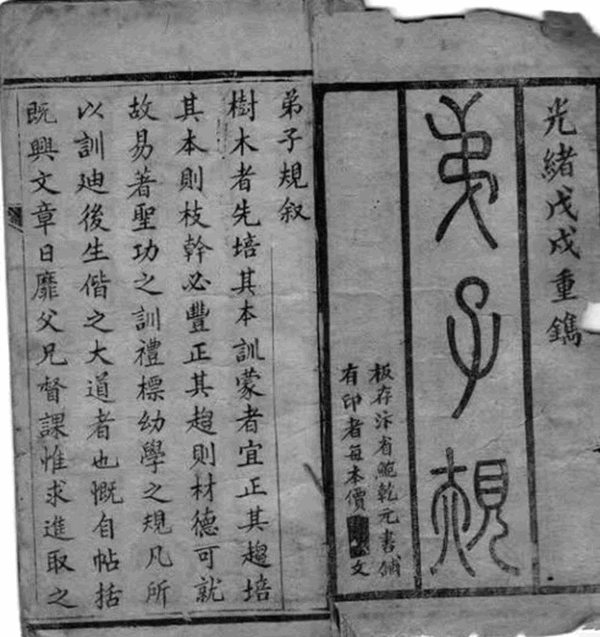 光緒戊戌重鐫
弟子規
板存汴省鮑乾元書鋪
有印者每本價文
弟子規叙
樹木者先培其本訓蒙者宜正其趨培
其本則枝幹必豐正其趨則材德可就
故易著聖功之訓禮標幼學之規凡所
以訓廸後生偕之大道者也慨自帖括
既興文章日靡父兄督課惟求進取之